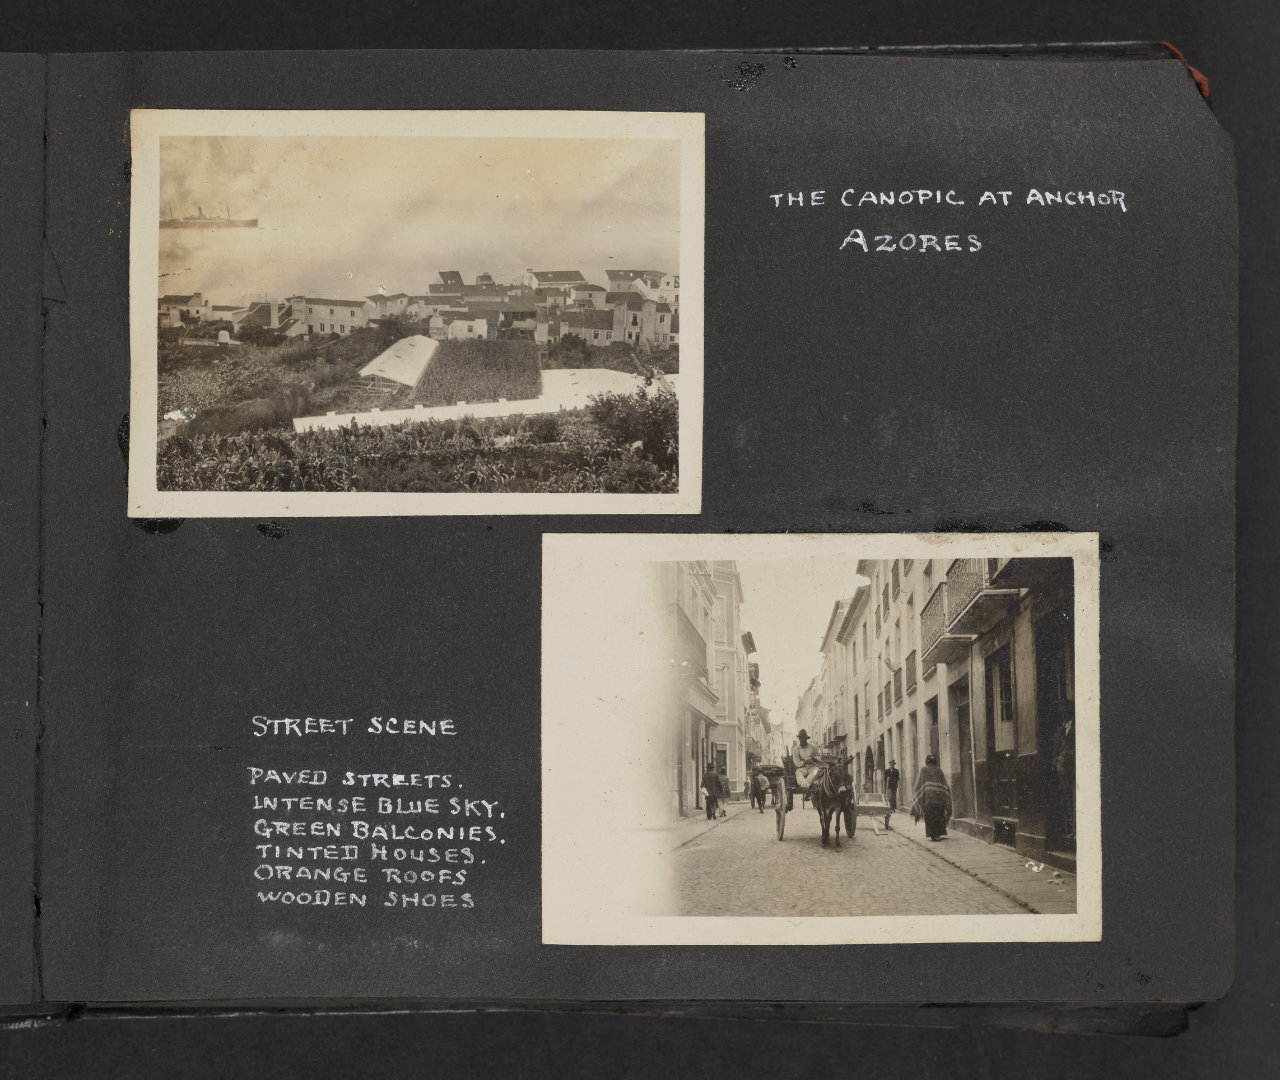 THE CANOPIC AT ANCHOR
AZORES
STREET SCENE
PAVED STREETS.
INTENSE BLUE SKY.
GREEN BALCONIES.
TINTED HOUSES.
ORANGE ROOFS
WOODEN SHOES